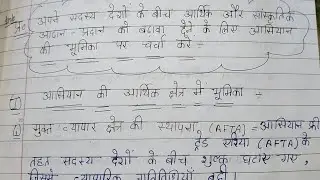 प्र०
अपने सदस्य देशों के बीच आर्थिक और सांस्कृतिक
आदान-प्रदान को बढ़ावा देने के लिए आसियान
की भूमिका पर चर्चा करे -
आसियान की आर्थिक क्षेत्र में भूमिका -
मुक्त व्यापार क्षेत्र की स्थापना (AFTA) - आसियान फ्री
ट्रेड एरिया (AFTA) के
तहत सदस्य देशों के बीच शुल्क घटाए गए,
जिससे व्यापारिक गतिविधियाँ बढ़ी।